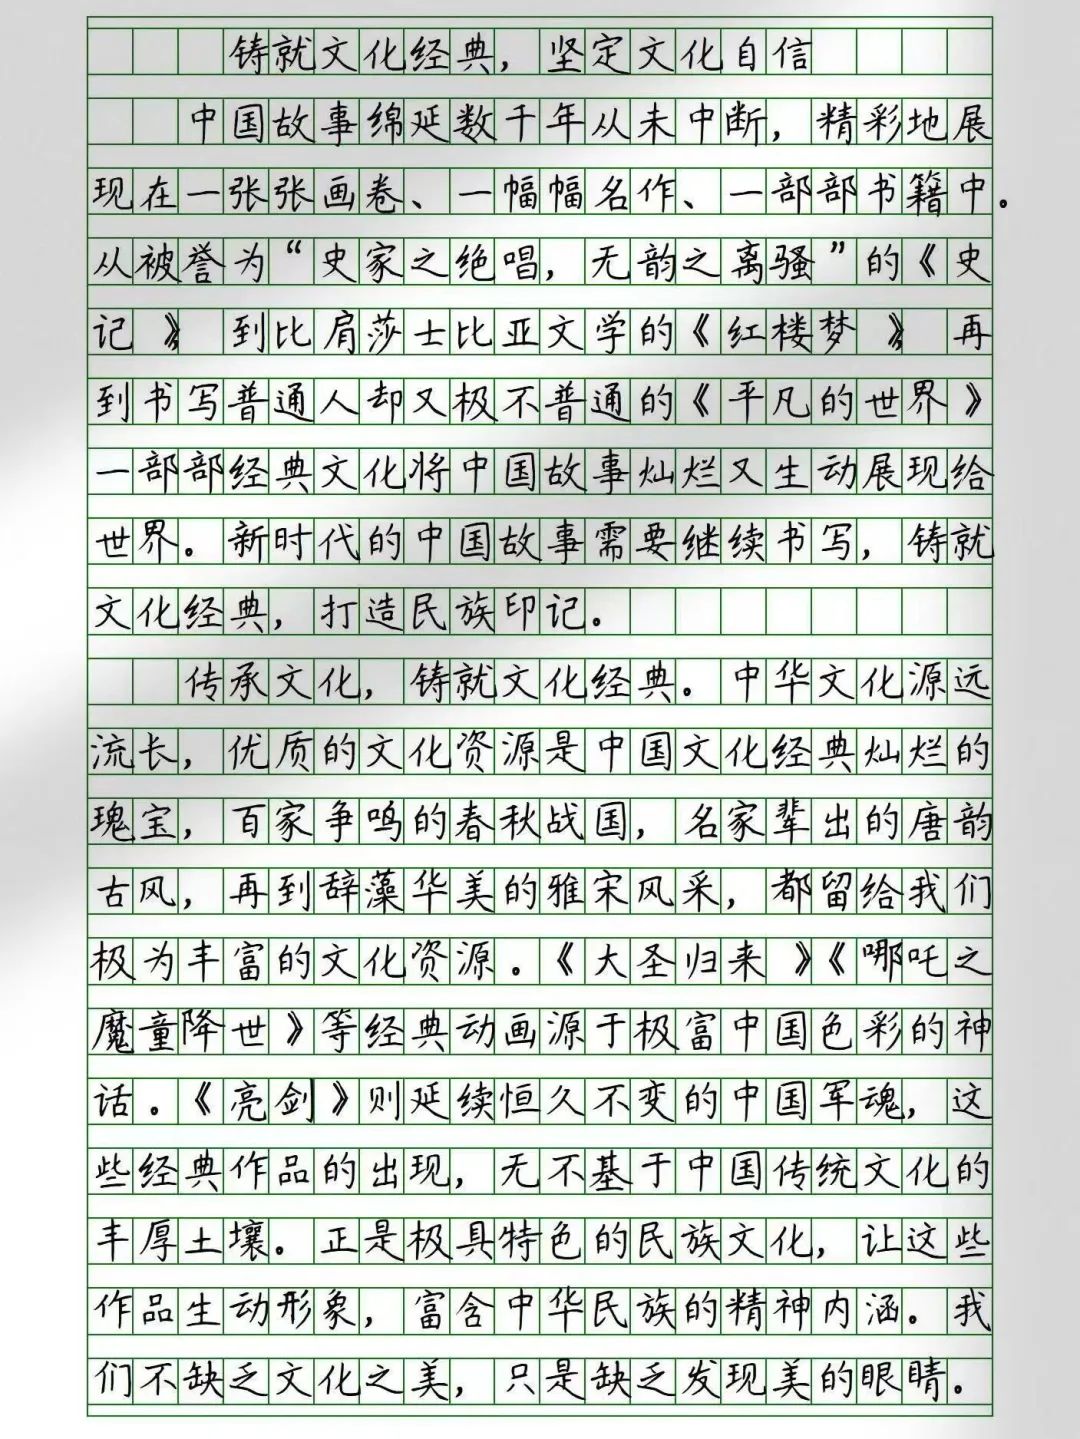 铸就文化经典，坚定文化自信
中国故事绵延数千年从未中断，精彩地展
现在一张张画卷、一幅幅名作、一部部书籍中。
从被誉为“史家之绝唱，无韵之离骚”的《史
记》，到比肩莎士比亚文学的《红楼梦》，再
到书写普通人却又极不普通的《平凡的世界》
一部部经典文化将中国故事灿烂又生动展现给
世界。新时代的中国故事需要继续书写，铸就
文化经典，打造民族印记。
传承文化，铸就文化经典。中华文化源远
流长，优质的文化资源是中国文化经典灿烂的
瑰宝，百家争鸣的春秋战国，名家辈出的唐韵
古风，再到辞藻华美的雅宋风采，都留给我们
极为丰富的文化资源。《大圣归来》《哪吒之
魔童降世》等经典动画源于极富中国色彩的神
话。《亮剑》则延续恒久不变的中国军魂，这
些经典作品的出现，无不基于中国传统文化的
丰厚土壤。正是极具特色的民族文化，让这些
作品生动形象，富含中华民族的精神内涵。我
们不缺乏文化之美，只是缺乏发现美的眼睛。